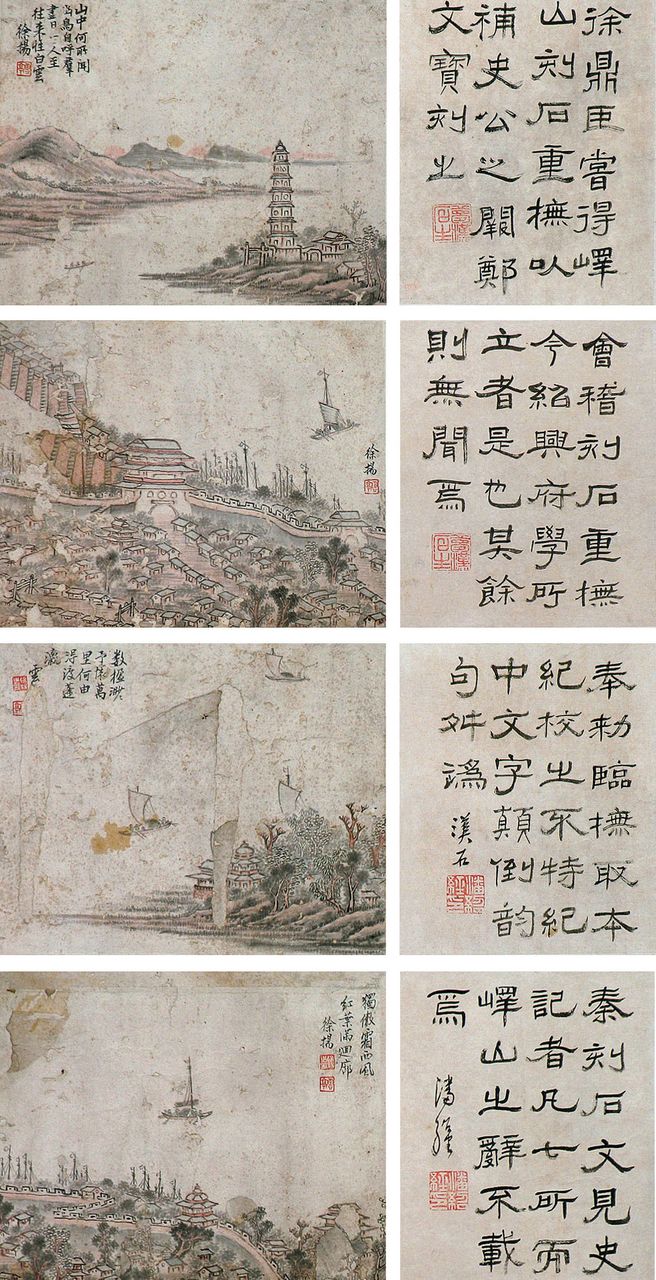 山中何所聞
鳥自呼羣
盡日人至
往來惟白雲
徐揚
徐鼎臣嘗得嶧
山刻石重橅以
補史公之闕鄭
文寶刻之
徐揚
會稽刻石重橅
今紹興府學所
立者是也其餘
則無聞焉
里何由
雲
奉勅臨橅取本
紀校之不特紀
中文字顛倒韵
句舛譌
石
獨傲霜西風
紅葉滿迴廊
徐揚
秦刻石文見史
記者凡七所而
嶧山之辭不載
焉
潘